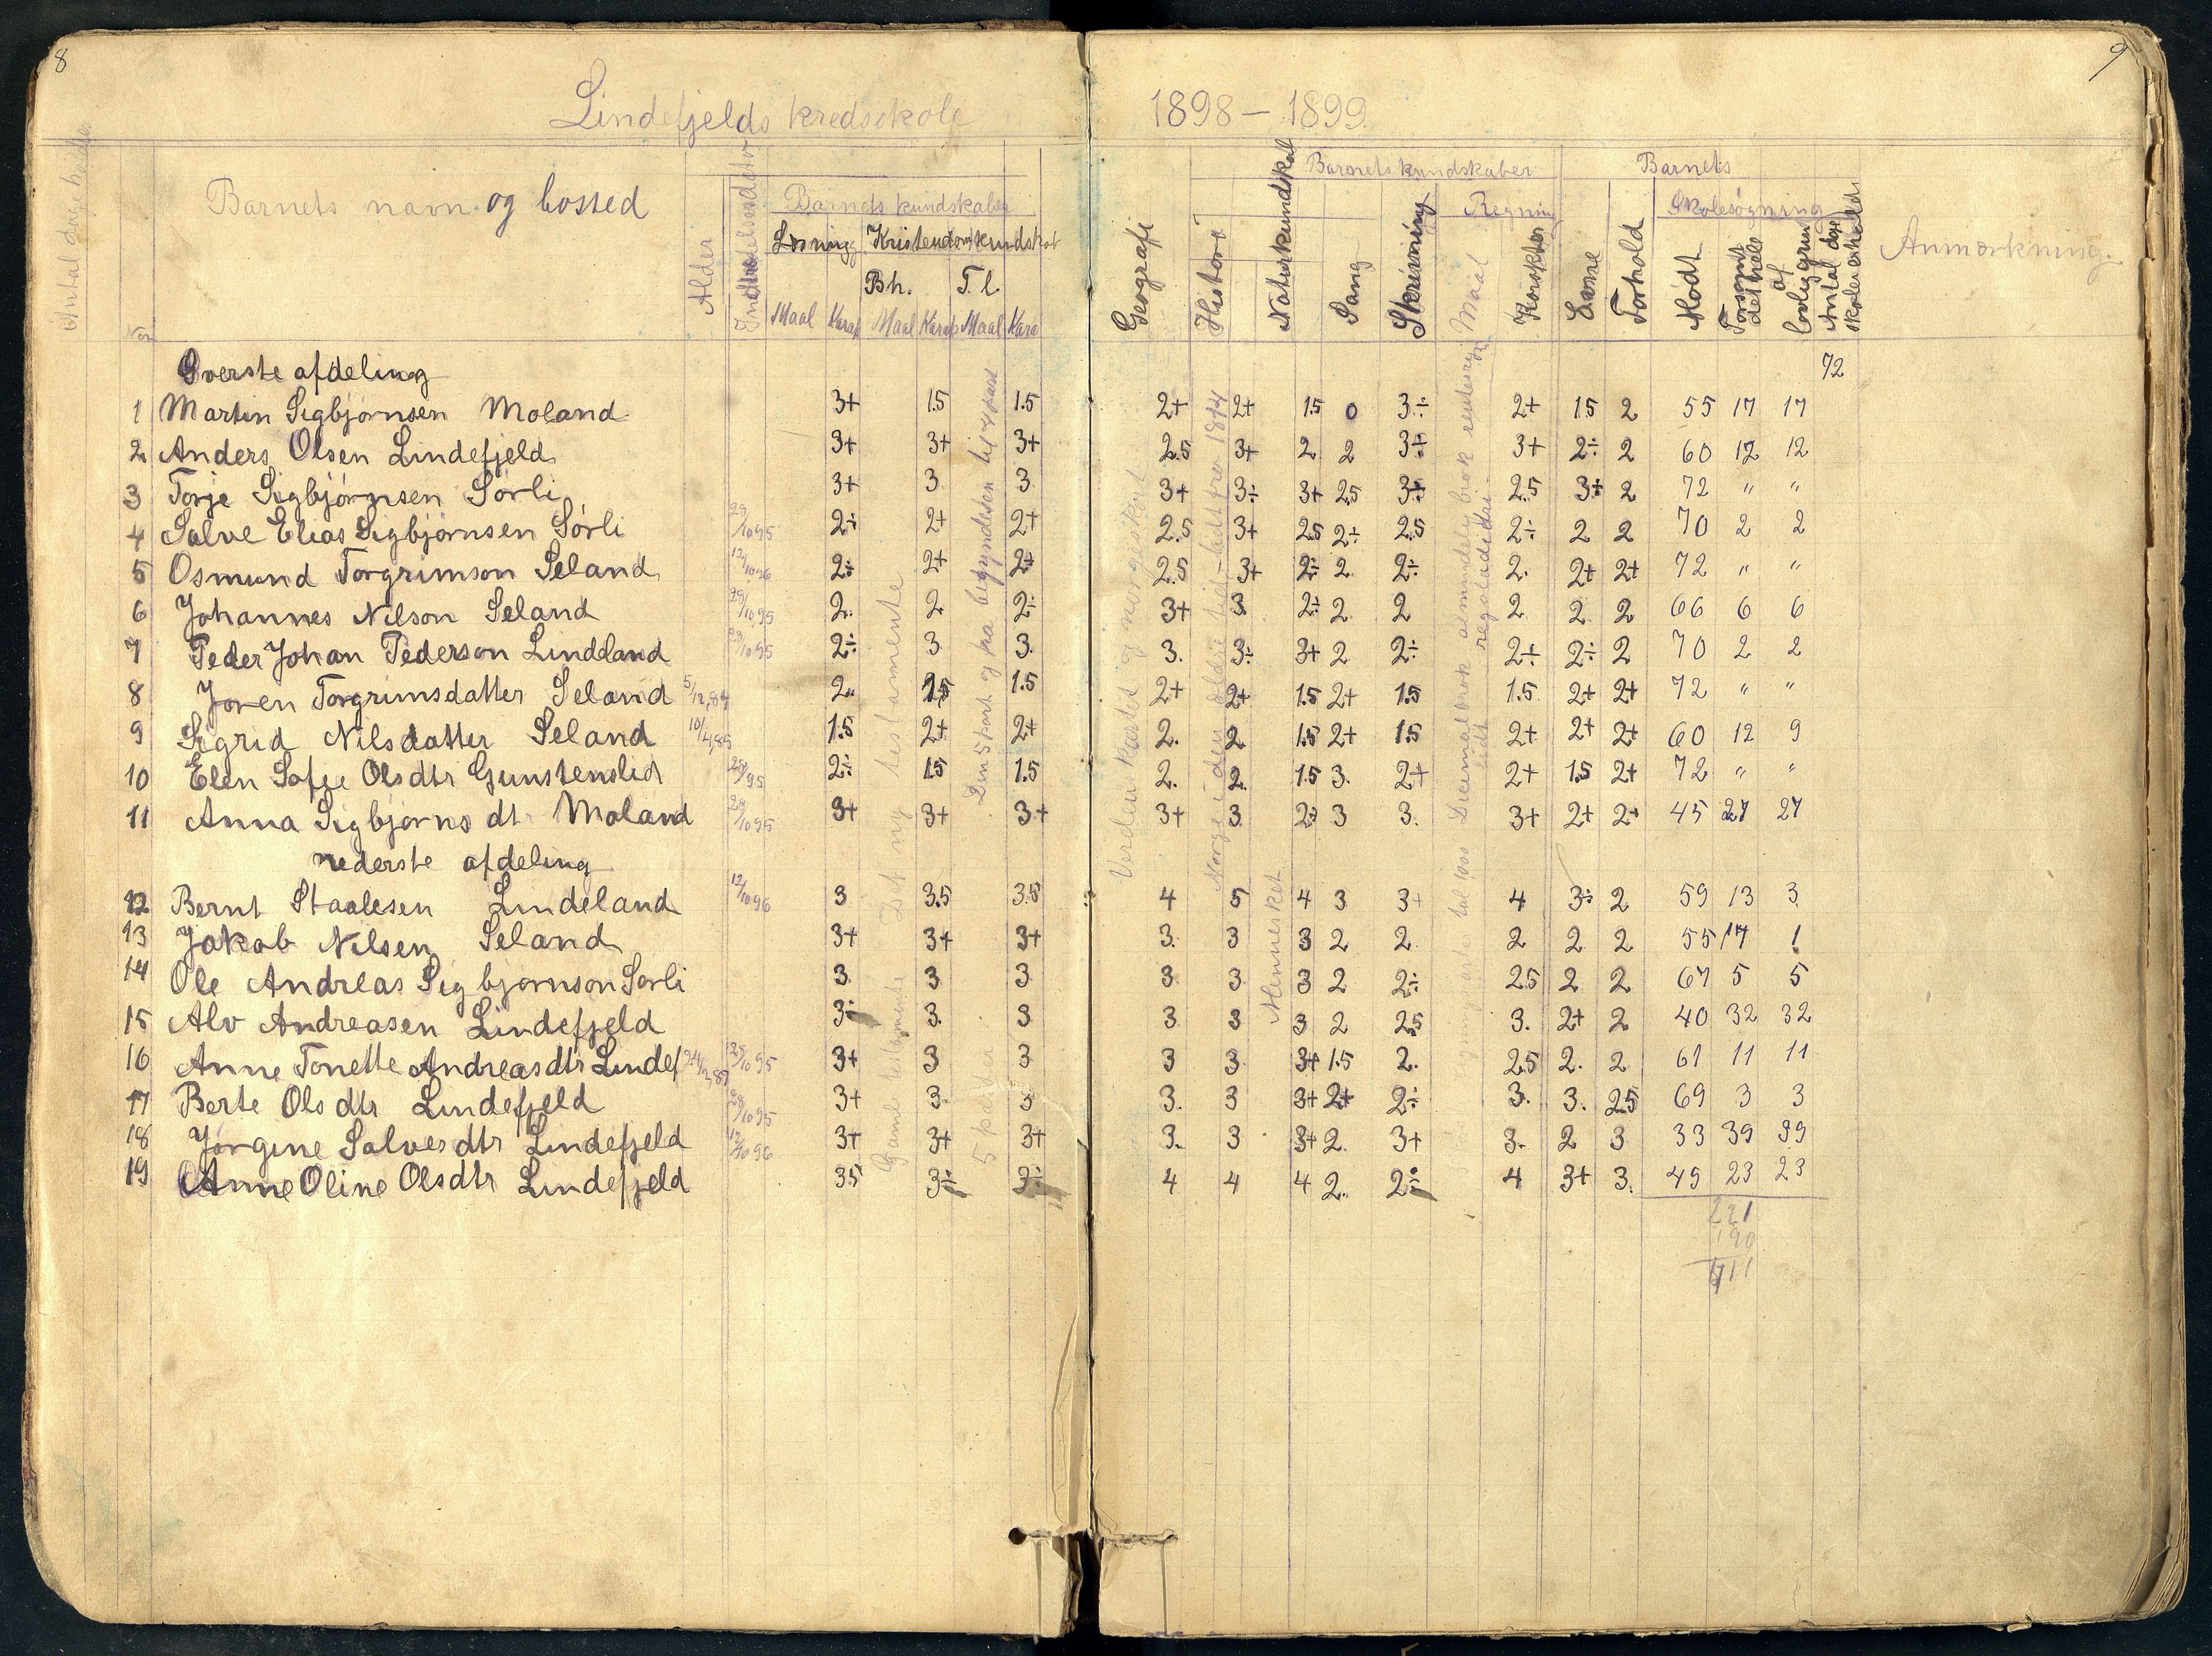 8
9
Lindefjelds kredsskole 1898 – 1899
Barnets navn og bosted
Alder
Barnets kundskaber
Læsning Kristendomskundskab
Bh. T. l.
Maal Karak Maal Karak Maal Kara
Geografi
Historie
Naturkundskab
Sang
Skrivning
Barnets kundskaber
Regning
Maal
Karakter
Barnets
Evne
Forhold
Skolesøgning
Mødt
Forsømt det hele
af lovlig grund
Antal dage skolen er holdt
Anmærkning.
Øverste afdeling 72
1 Martin Sigbjørnsen Moland 3+ 1.5 1.5 2+ 2+ 1.5 0 3÷ 2+ 1.5 2 55 17 17
2 Anders Olsen Lindefjeld 3+ 3+ 3+ 2.5 3+ 2 2 3÷ 3+ 2÷ 2 60 12 12
3 Torje Sigbjørnsen Sørli 3+ 3 3 3+ 3÷ 3+ 2.5 3+ 2.5 3+ 2 72 " "
4 Salve Elias Sigbjørnsen Sørli 29/10 95 2÷ 2+ 2+ 2.5 3+ 2.5 2÷ 2.5 2÷ 2 2 70 2 2
5 Osmund Torgrimson Seland 12/10 96 2÷ 2+ 2+ 2.5 3+ 2÷ 2 2÷ 2. 2+ 2+ 72 " "
6 Johannes Nilson Seland 29/10 95 2. 2 2÷ 3+ 3. 2÷ 2 2 2 2 2 66 6 6
7 Peder Johan Pederson Lindeland 29/10 95 2÷ 3 3. 3. 3÷ 3+ 2 2÷ 2÷ 2÷ 2 70 2 2
8 Joren Torgrimsdatter Seland 5/12,84 2.. 1.5 1.5 2+ 2+ 1.5 2+ 1.5 1.5 2+ 2+ 72 " "
9 Sigrid Nilsdatter Seland 10/4,85 1.5 2+ 2+ 2. 2 1.5 2+ 1.5 2+ 2+ 2+ 60 12 9
10 Elen Sofie Olsdtr Gunstenslid 2÷ 1.5 1.5 2. 2. 1.5 3. 2+ 2+ 1.5 2+ 72 " "
11 Anna Sigbjørns dt. Moland 29/10 95 3+ 3+ 3+ 3+ 3 2+ 3 3. 3+ 2+ 2+ 45 27 27
nederste afdeling
12 Bernt Staalesen Lindeland 12/10 96 3 3.5 3.5 4 5 4 3 3+ 4 3÷ 2 59 13 3
13 Jakob Nilsen Seland 3+ 3+ 3+ 3. 3 3 2 2. 2 2 2 55 17 1
14 Ole Andreas Sigbjørnson Sørli 3 3 3 3. 3. 3 2 2÷ 2.5 2 2 67 5 5
15 Alv Andreasen Lindefjeld 3÷ 3. 3 3 3 3 2 2.5 3. 2+ 2 40 32 32
16 Anne Tonette Andreasdtr Lindef 3+ 3 3 3 3. 3+ 1.5 2. 2.5 2. 2 61 11 11
17 Berte Olsdtr Lindefjeld 3+ 3. 3 3. 3 3+ 2+ 2÷ 3. 3. 2.5 69 3 3
18 Jørgine Salvesdtr Lindefjeld 12/10 96 3+ 3+ 3+ 3. 3 3+ 2. 3+ 3. 2 3 33 39 39
19 Anne Oline Olsdtr Lindefjeld 3.5 3÷ 3÷ 4 4 4 2. 2÷ 4 3+ 3. 49 23 23
221
190
Det ny testamente
Gamle testamente
Den 5 part og fra begyndelsen til 4 part
Mennesket